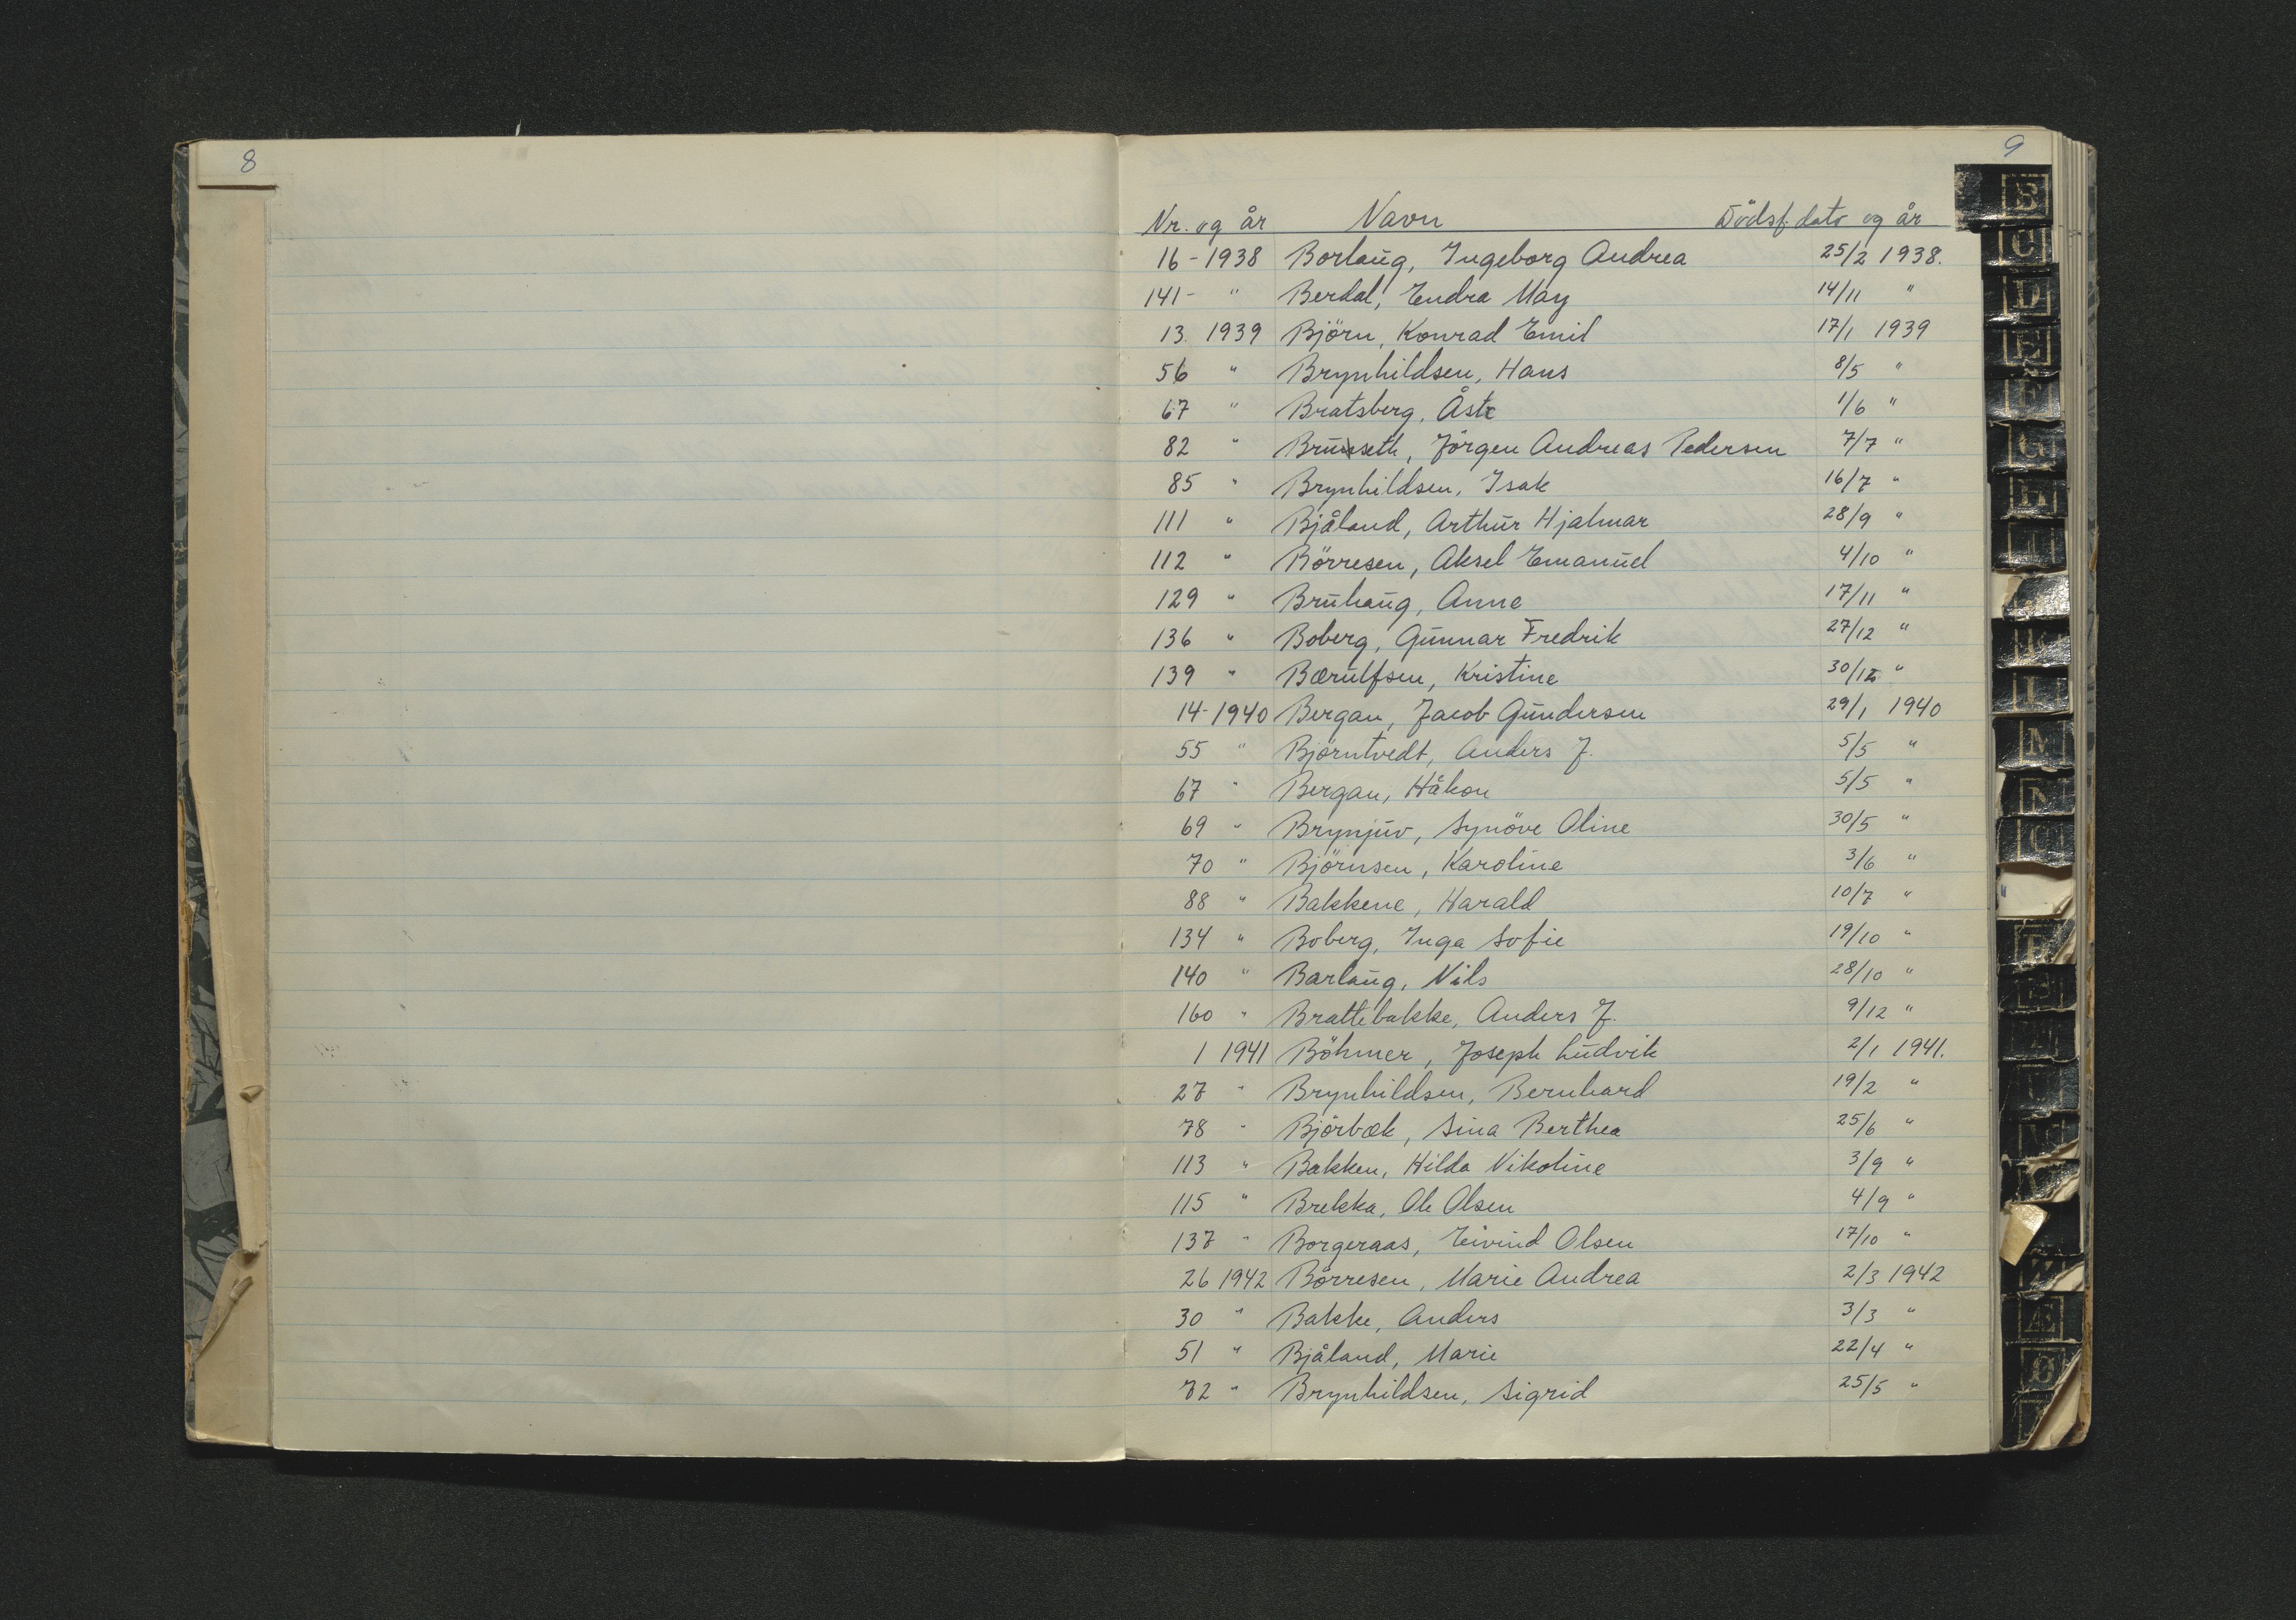 8
9
Nr. og år Navn Dödsf. dato og år
16 - 1938 Borlaug, Ingeborg Andrea 25/2 1938.
141 - " Berdal, Endra May 14/11 "
13. 1939 Björn, Konrad Emil 17/1 1939
56 " Brynhildsen, Hans 8/5 "
67 " Bratsberg, Åste 1/6 "
82 " Brunseth, Jörgen Andreas Pedersen 7/7 "
85 " Brynhildsen, Isak 16/7 "
111 " Bjåland, Arthur Hjalmar 28/9 "
112 " Börresen, Aksel Emanuel 4/10 "
129 " Bruhaug, Anne 17/11 "
136 " Boberg, Gunnar Fredrik 27/12 "
139 " Bærulfsen, Kristine 30/12 "
14 - 1940 Bergan, Jacob Gundersen 29/1 1940
55 " Björntvedt, Anders J. 5/5 "
67 " Bergan, Håkon 5/5 "
69 " Brynjuv, Synöve Oline 30/5 "
70 " Björnsen, Karoline 3/6 "
88 " Bakkene, Harald 10/7 "
134 " Boberg, Inga Sofie 19/10 "
140 " Barlaug, Nils 28/10 "
160 " Brattebakke, Anders J. 9/12 "
1 1941 Böhmer, Joseph Ludvik 2/1 1941.
27 " Brynhildsen, Bernhard 19/2 "
78 " Björbæk, Sina Berthea 25/6 "
113 " Bakken, Hilda Nikoline 3/9 "
115 " Brekka, Ole Olsen 4/9 "
137 " Borgeraas, Eivind Olsen 17/10 "
26 1942 Börresen, Marie Andrea 2/3 1942
30 " Bakke, Anders 3/3 "
51 " Bjåland, Marie 22/4 "
72 " Brynhildsen, Sigrid 25/5 "
B
C
D
E
F
G
H
I
K
L
M
N
O
P
U
Æ
Ø